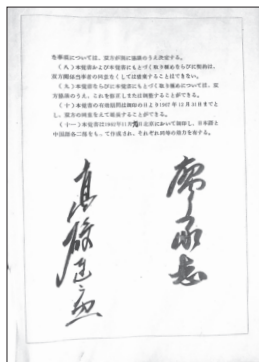 な事項については、双方が別に協議のうえ決定する。
(八)本覚書および本覚書にもとづく取り極めならびに契約は、
双方関係当事者の同意なくしては破棄することはできない。
(九)本覚書ならびに本覚書にもとづく取り極めについては、双方
協議のうえ、これを修正しまたは調整することができる。
(十)本覚書の有効期間は調印の日より1967年12月31日までと
し、双方の同意をえて延長することができる。
(十一)本覚書は1962年11月9日北京において調印し、日本語と
中国語各二通をもって作成され、それぞれ同等の効力を有する。
廖承志
高碕達之助